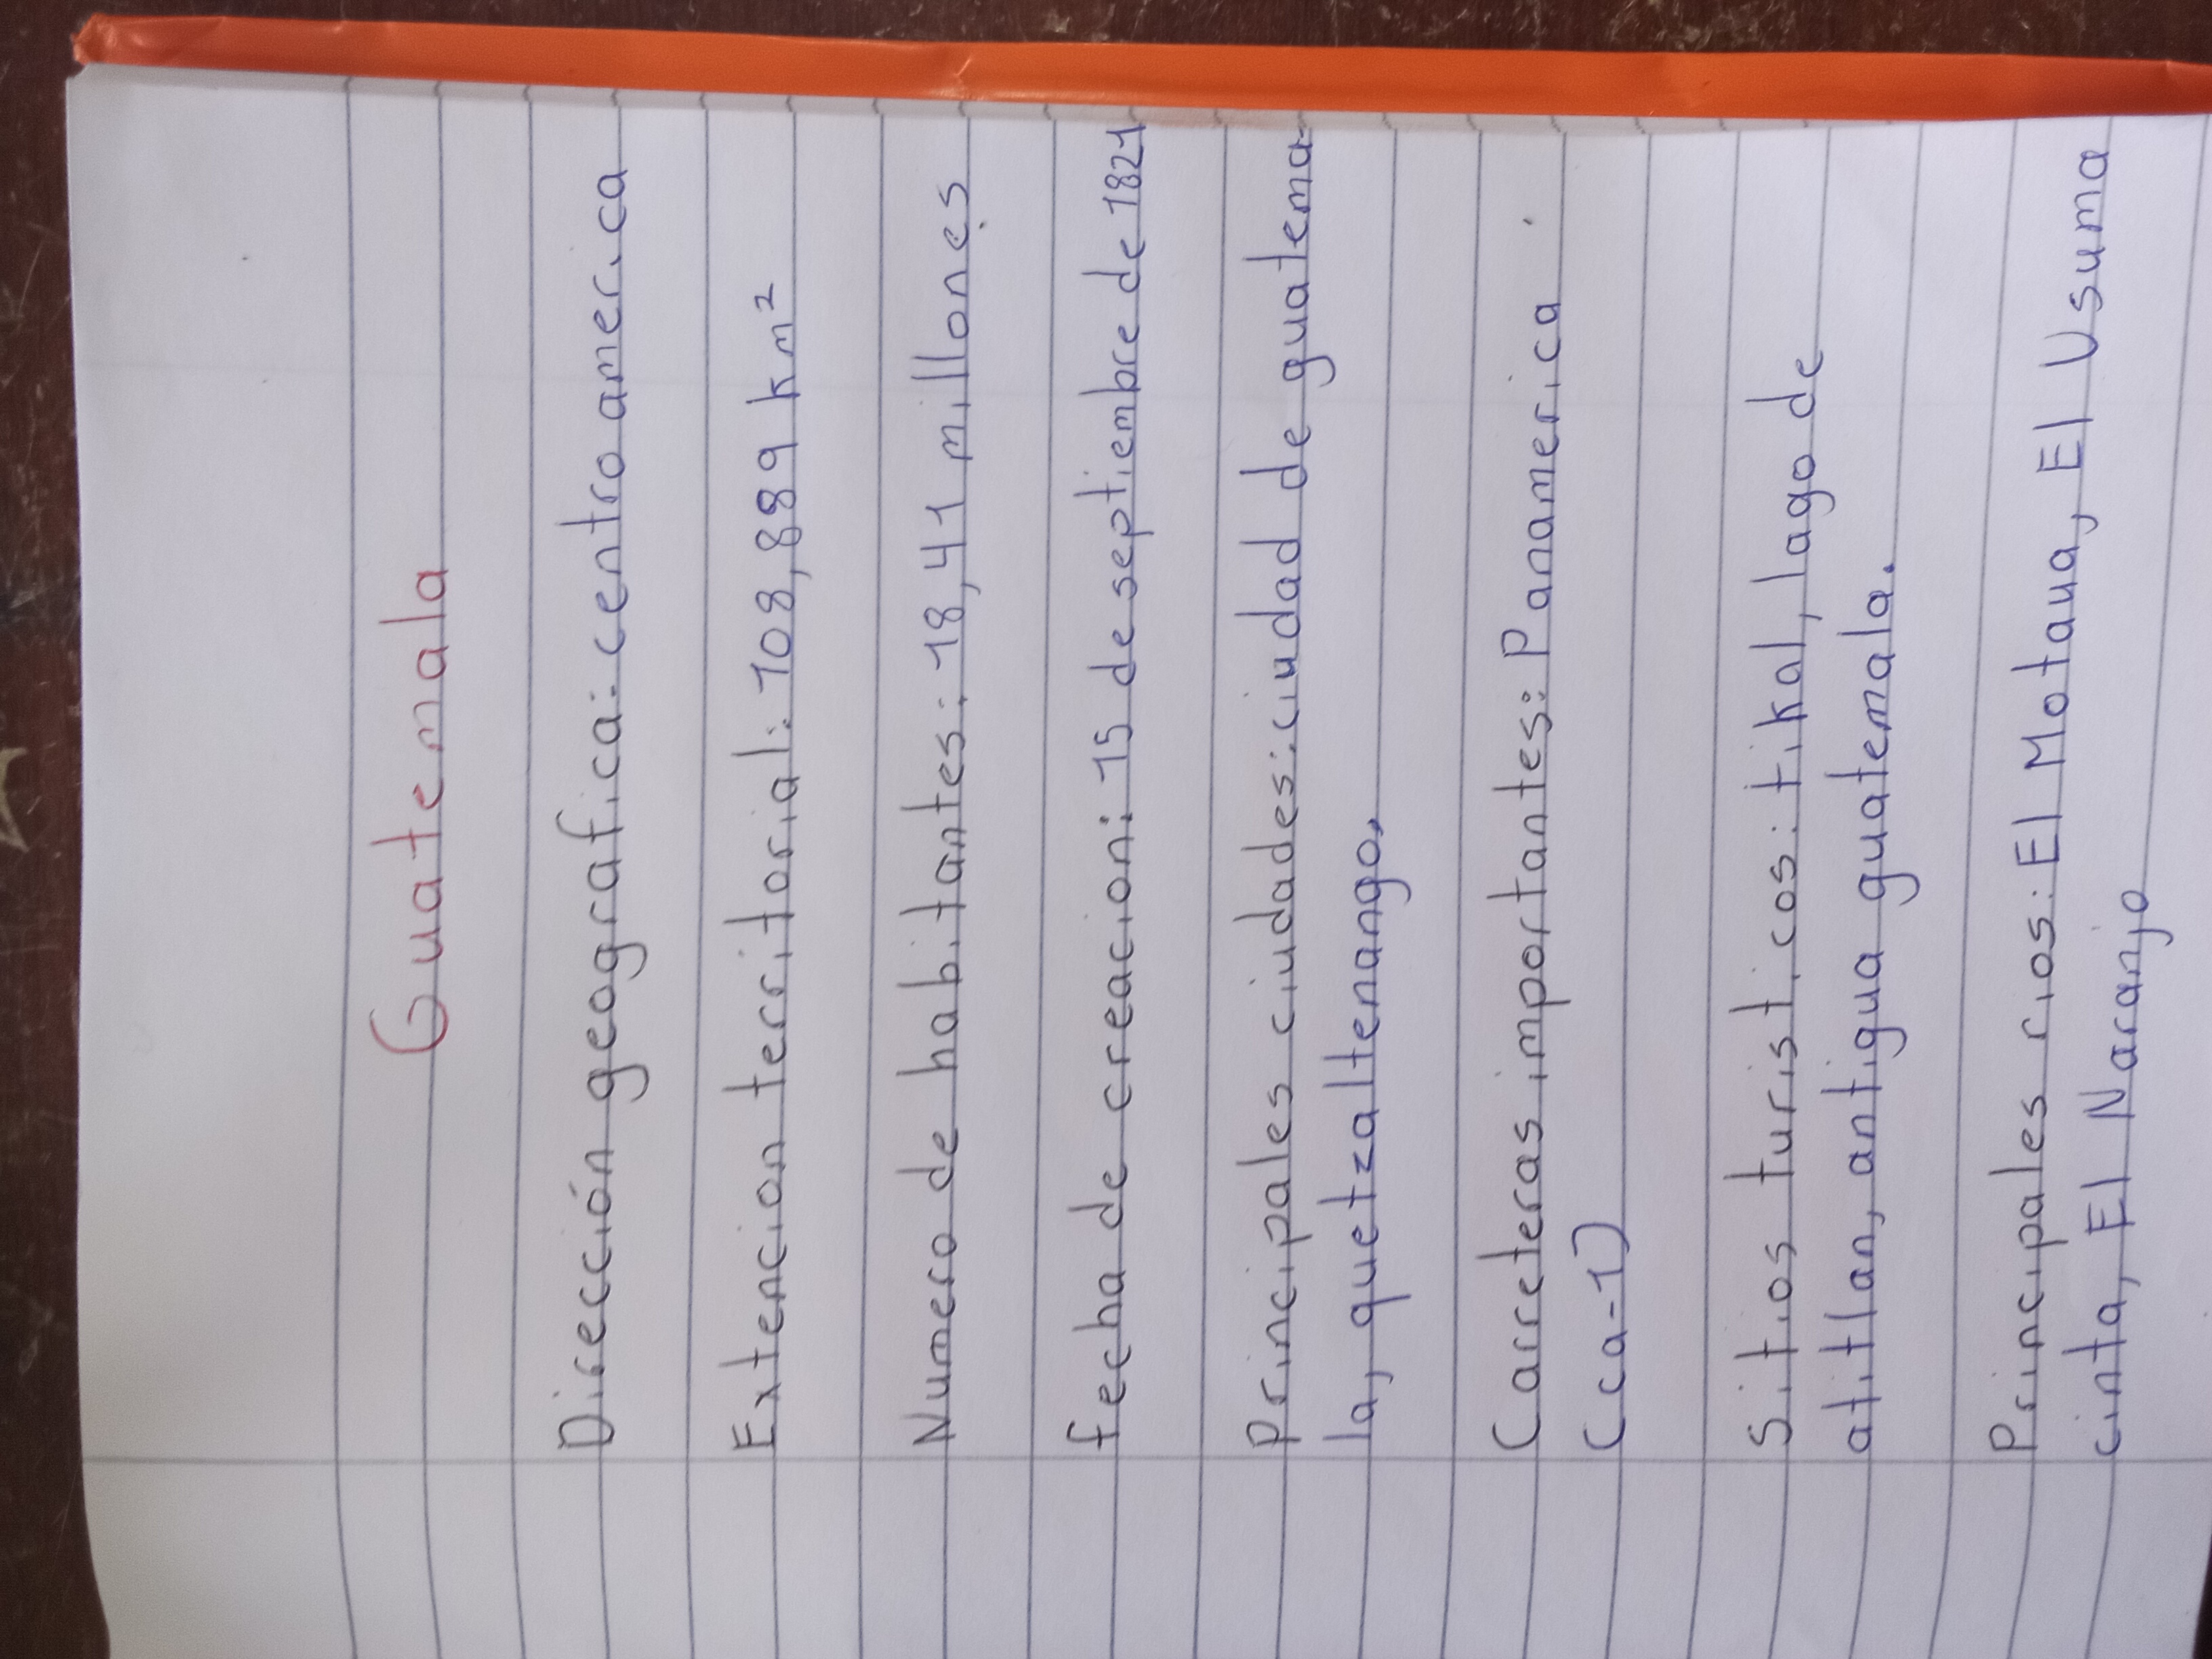 Guatemala
Dirección geografica: centro america
Extencion territorial: 108,889 km²
Numero de habitantes: 18,41 millones
fecha de creacion: 15 de septiembre de 1821
Principales ciudades: ciudad de guatema-
la, quetzaltenango,
Carreteras importantes: Panamerica
(ca-1)
Sitios turisticos: tikal, lago de
atitlan, antigua guatemala.
Principales rios: El Motaua, El Usuma
cinta, El Naranjo